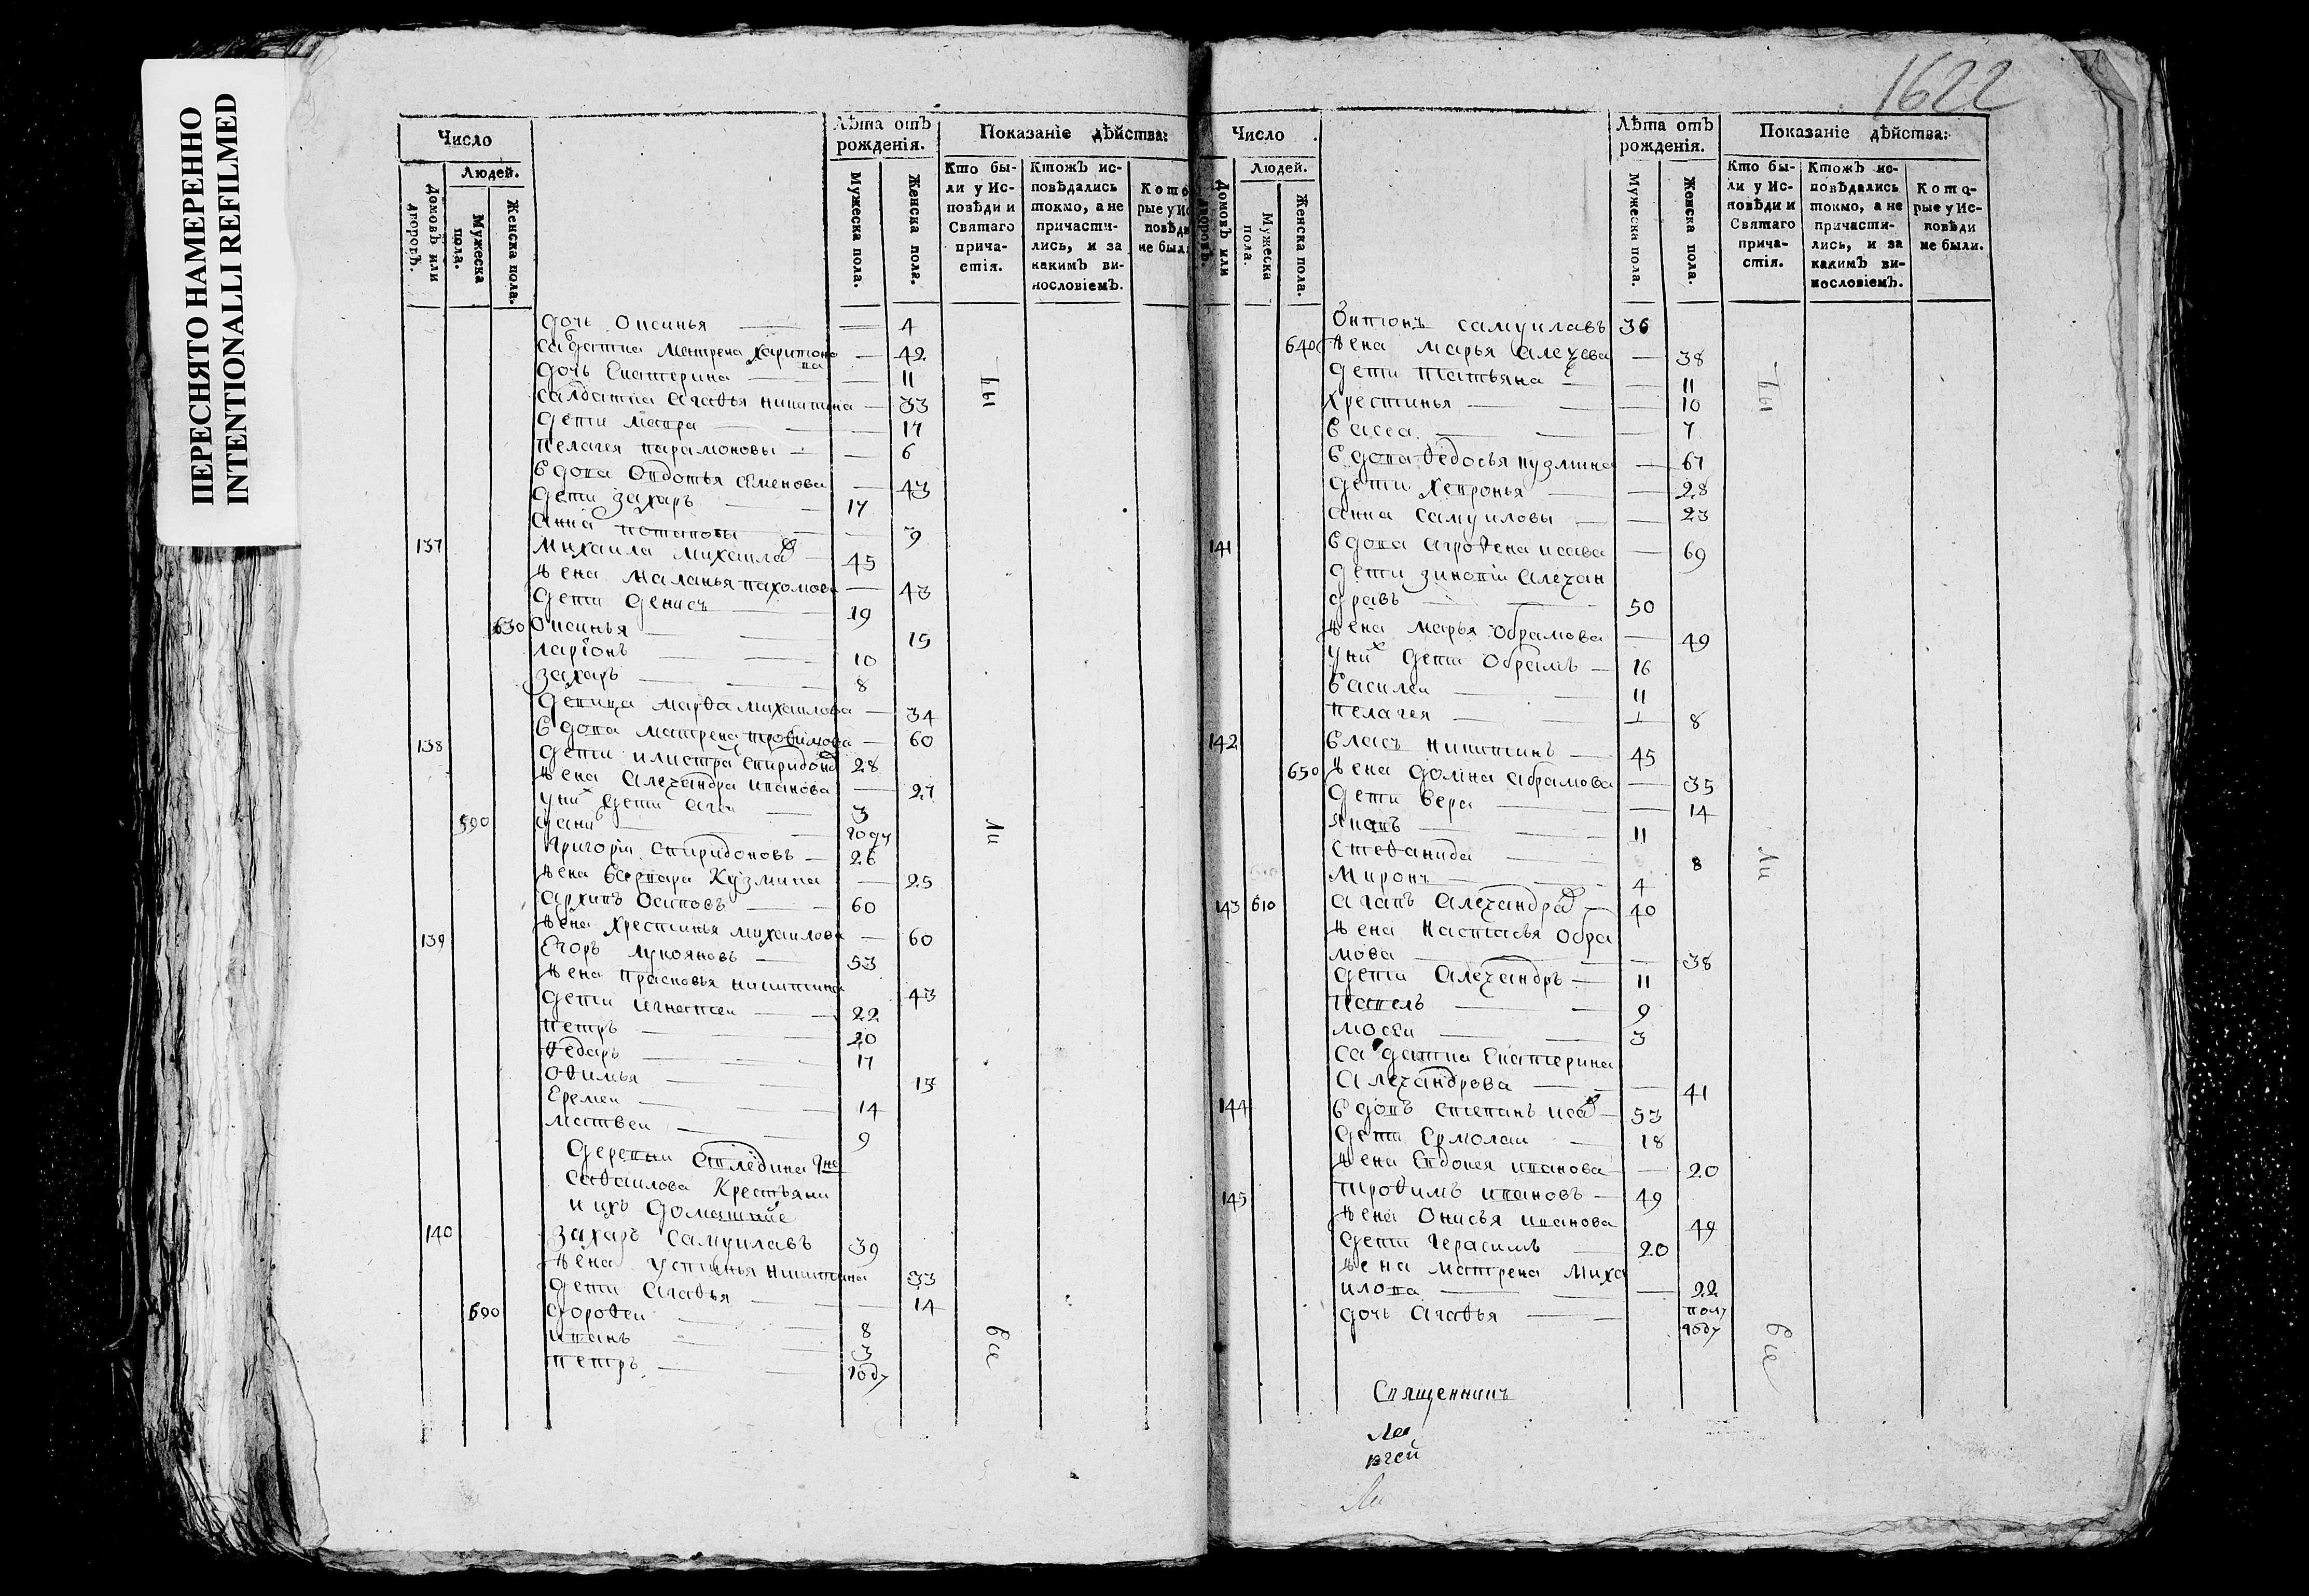 ПЕРЕСНЯТО НАМЕРЕННО
INTENTIONALLI REFILMED
1622
Число
Лѣта отъ рожденія.
Показаніе дѣйства:
Людей.
Домовъ или дворовъ.
Мужеска пола.
Женска пола.
Мужеска пола.
Женска пола.
Кто были у Исповѣди и Святаго причастія.
Ктожъ исповѣдались токмо, а не причастились, и за какимъ винословіемъ.
Кото
рые у Ис
повѣди
не были
дочь Оксинья 4
салдатка Матрена Харитонова 42
дочь Екатерина 11
салдатка Агафья никитина 33
дети мавра 17
пелагея парамоновы 6
вдова Овдотья семенова 43
дети захаръ 17
анна потаповы 9
137 Михаила михаилав 45
жена маланья пахомова 43
дети денисъ 19
630 Оксинья 15
лариѡнъ 10
захаръ 8
девица марфа михаилова 34
138 вдова матрена трофимова 60
дети илистра спиридонов 28
жена алеѯандра иванова 27
у них дети 3
590 году
григории спиридоновъ 26
жена варвара Кузмина 25
архипъ Осиповъ 60
жена хрестинья михаилова 60
139 Егоръ лукояновъ 53
жена прасковья никитина 43
дети игнатеи 22
петръ 20
федаръ 17
офимья 15
Еремеи 14
матвеи 9
деревни
Крестьяни
и ихъ домашние
140 захаръ самуилавъ 39
жена устинья никитина 33
дети агафья 14
600 дорофеи 8
иванъ 3
петръ году
ты
ли
все
Число
Лѣта отъ рожденія.
Показаніе дѣйства:
Людей.
Домовъ или дворовъ.
Мужеска пола.
Женска пола.
Мужеска пола.
Женска пола.
Кто были у Исповѣди и Святаго причастія.
Ктожъ исповѣдались токмо, а не причастились, и за какимъ винословіемъ.
Которые у Исповѣди не были.
Онтонъ самуилавъ 36
640 жена марья алеѯева 38
дети татьяна 11
хрестинья 10
васса 7
вдова федосья кузмина 67
дети хевронья 28
анна самуиловы 23
141 вдова агрофена исаева 69
дети зиновіи алеѯан
дравъ 50
жена марья обрамова 49
у них дети обрамъ 16
василеи 11
пелагея 8
142 власъ никитинъ 45
650 жена домна абрамова 35
дети вера 14
яковъ 11
стефанида 8
миронъ 4
143 610 агапъ алеѯандрав 40
жена настасья обра
мова 38
дети алеѯандръ 11
павелъ 9
мосеи 3
садатка Екатерина
алеѯандрова 41
144 вдовъ степанъ исав 53
дети Ермолаи 18
жена Евдокея иванова 20
145 трофимъ ивановъ 49
жена Онисья иванова 49
дети герасимъ 20
жена матрена миха
илова 22
дочь агафья полу
году
ты
ли
все
Священникъ